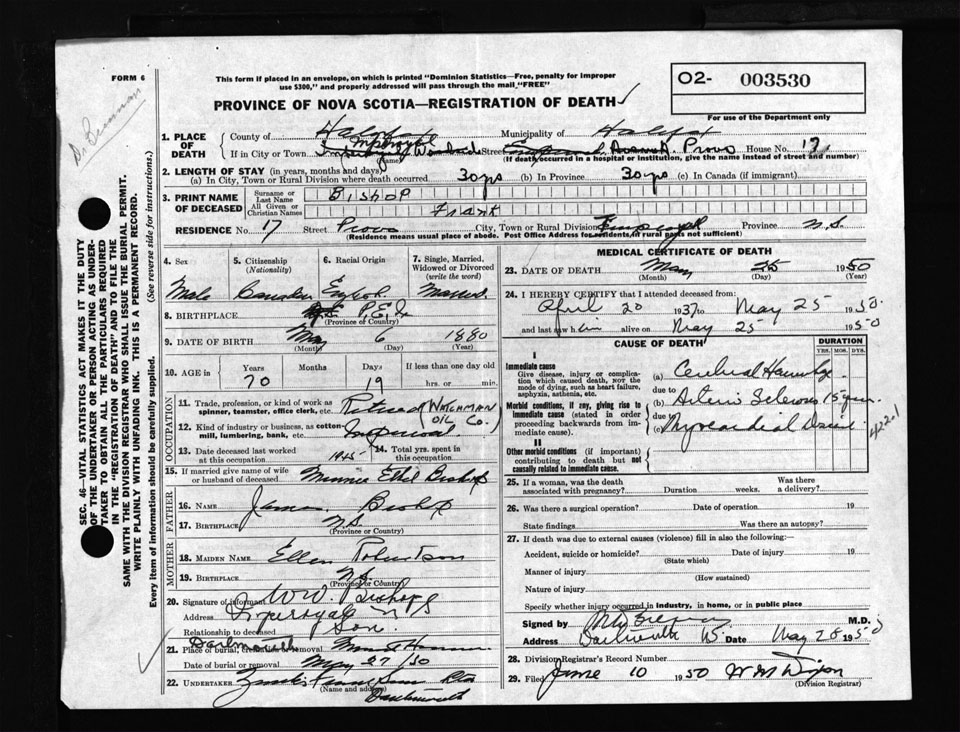 FORM 6
This form if placed in an envelope, on which is printed "Dominion Statistics—Free, penalty for improper
use $300," and properly addressed will pass through the mail "FREE"
02- 003530
For use of the Department only
PROVINCE OF NOVA SCOTIA—REGISTRATION OF DEATH
1. PLACE OF DEATH
County of Halifax Municipality of Halifax
If in City or Town Imperoyal Street Provo House No. 17
(Name) (If death occurred in a hospital or institution, give the name instead of street and number)
2. LENGTH OF STAY (in years, months and days)
(a) In City, Town or Rural Division where death occurred 30 yrs (b) In Province 30 yrs (c) In Canada (if immigrant)
3. PRINT NAME OF DECEASED
Surname or Last Name Bishop
All Given or Christian Names Frank
RESIDENCE No. 17 Street Provo City, Town or Rural Division Imperoyal Province N.S.
(Residence means usual place of abode. Post Office Address for residents in rural parts not sufficient)
4. Sex Male
5. Citizenship (Nationality) Canadian
6. Racial Origin English
7. Single, Married, Widowed or Divorced (write the word) Married
8. BIRTHPLACE P.E.I.
(Province or Country)
9. DATE OF BIRTH May 6 1880
(Month) (Day) (Year)
10. AGE in Years 70 Months Days 19 If less than one day old hrs. or min.
OCCUPATION
11. Trade, profession or kind of work as spinner, teamster, office clerk, etc. Retired (Watchman Oil Co.)
12. Kind of industry or business, as cotton-mill, lumbering, bank, etc. Imperial
13. Date deceased last worked at this occupation 1945
14. Total yrs. spent in this occupation
15. If married give name of wife or husband of deceased Minnie Ethel Bishop
FATHER
16. NAME James Bishop
17. BIRTHPLACE N.S.
(Province or Country)
MOTHER
18. MAIDEN NAME Ellen Robertson
19. BIRTHPLACE N.S.
(Province or Country)
20. Signature of informant W.W. Bishop
Address Imperoyal N.S.
Relationship to deceased Son
21. Place of burial, cremation or removal Dartmouth
Date of burial or removal May 27/50
22. UNDERTAKER
(Name and address) Dartmouth
MEDICAL CERTIFICATE OF DEATH
23. DATE OF DEATH May 25 1950
(Month) (Day) (Year)
24. I HEREBY CERTIFY that I attended deceased from:
April 20 1937 to May 25 1950.
and last saw him alive on May 25 1950
CAUSE OF DEATH
DURATION
YRS. MOS. DYS.
I
Immediate cause
Give disease, injury or complication which caused death, not the mode of dying, such as heart failure, asphyxia, asthenia, etc.
(a) Cerebral Haemorrhage
due to
Morbid conditions, if any, giving rise to immediate cause (stated in order proceeding backwards from immediate cause).
(b) Arterio Sclerosis 15 years
due to
(c) Myocardial Disease
4221
II
Other morbid conditions (if important) contributing to death but not causally related to immediate cause.
25. If a woman, was the death associated with pregnancy? Duration weeks. Was there a delivery?
26. Was there a surgical operation? Date of operation 19
State findings Was there an autopsy?
27. If death was due to external causes (violence) fill in also the following:
Accident, suicide or homicide? Date of injury 19
(State which)
Manner of injury
(How sustained)
Nature of injury
Specify whether injury occurred in industry, in home, or in public place
Signed by M.D.
Address Dartmouth NS Date May 28 1950
28. Division Registrar's Record Number
29. Filed June 10 1950 W M Dixon
(Division Registrar)
SEC. 46—VITAL STATISTICS ACT MAKES IT THE DUTY
OF THE UNDERTAKER OR PERSON ACTING AS UNDER-
TAKER TO OBTAIN ALL THE PARTICULARS REQUIRED
IN THE "REGISTRATION OF DEATH" AND TO FILE THE
SAME WITH THE DIVISION REGISTRAR WHO SHALL ISSUE THE BURIAL PERMIT.
WRITE PLAINLY WITH UNFADING INK. THIS IS A PERMANENT RECORD.
Every item of information should be carefully supplied. (See reverse side for instructions.)